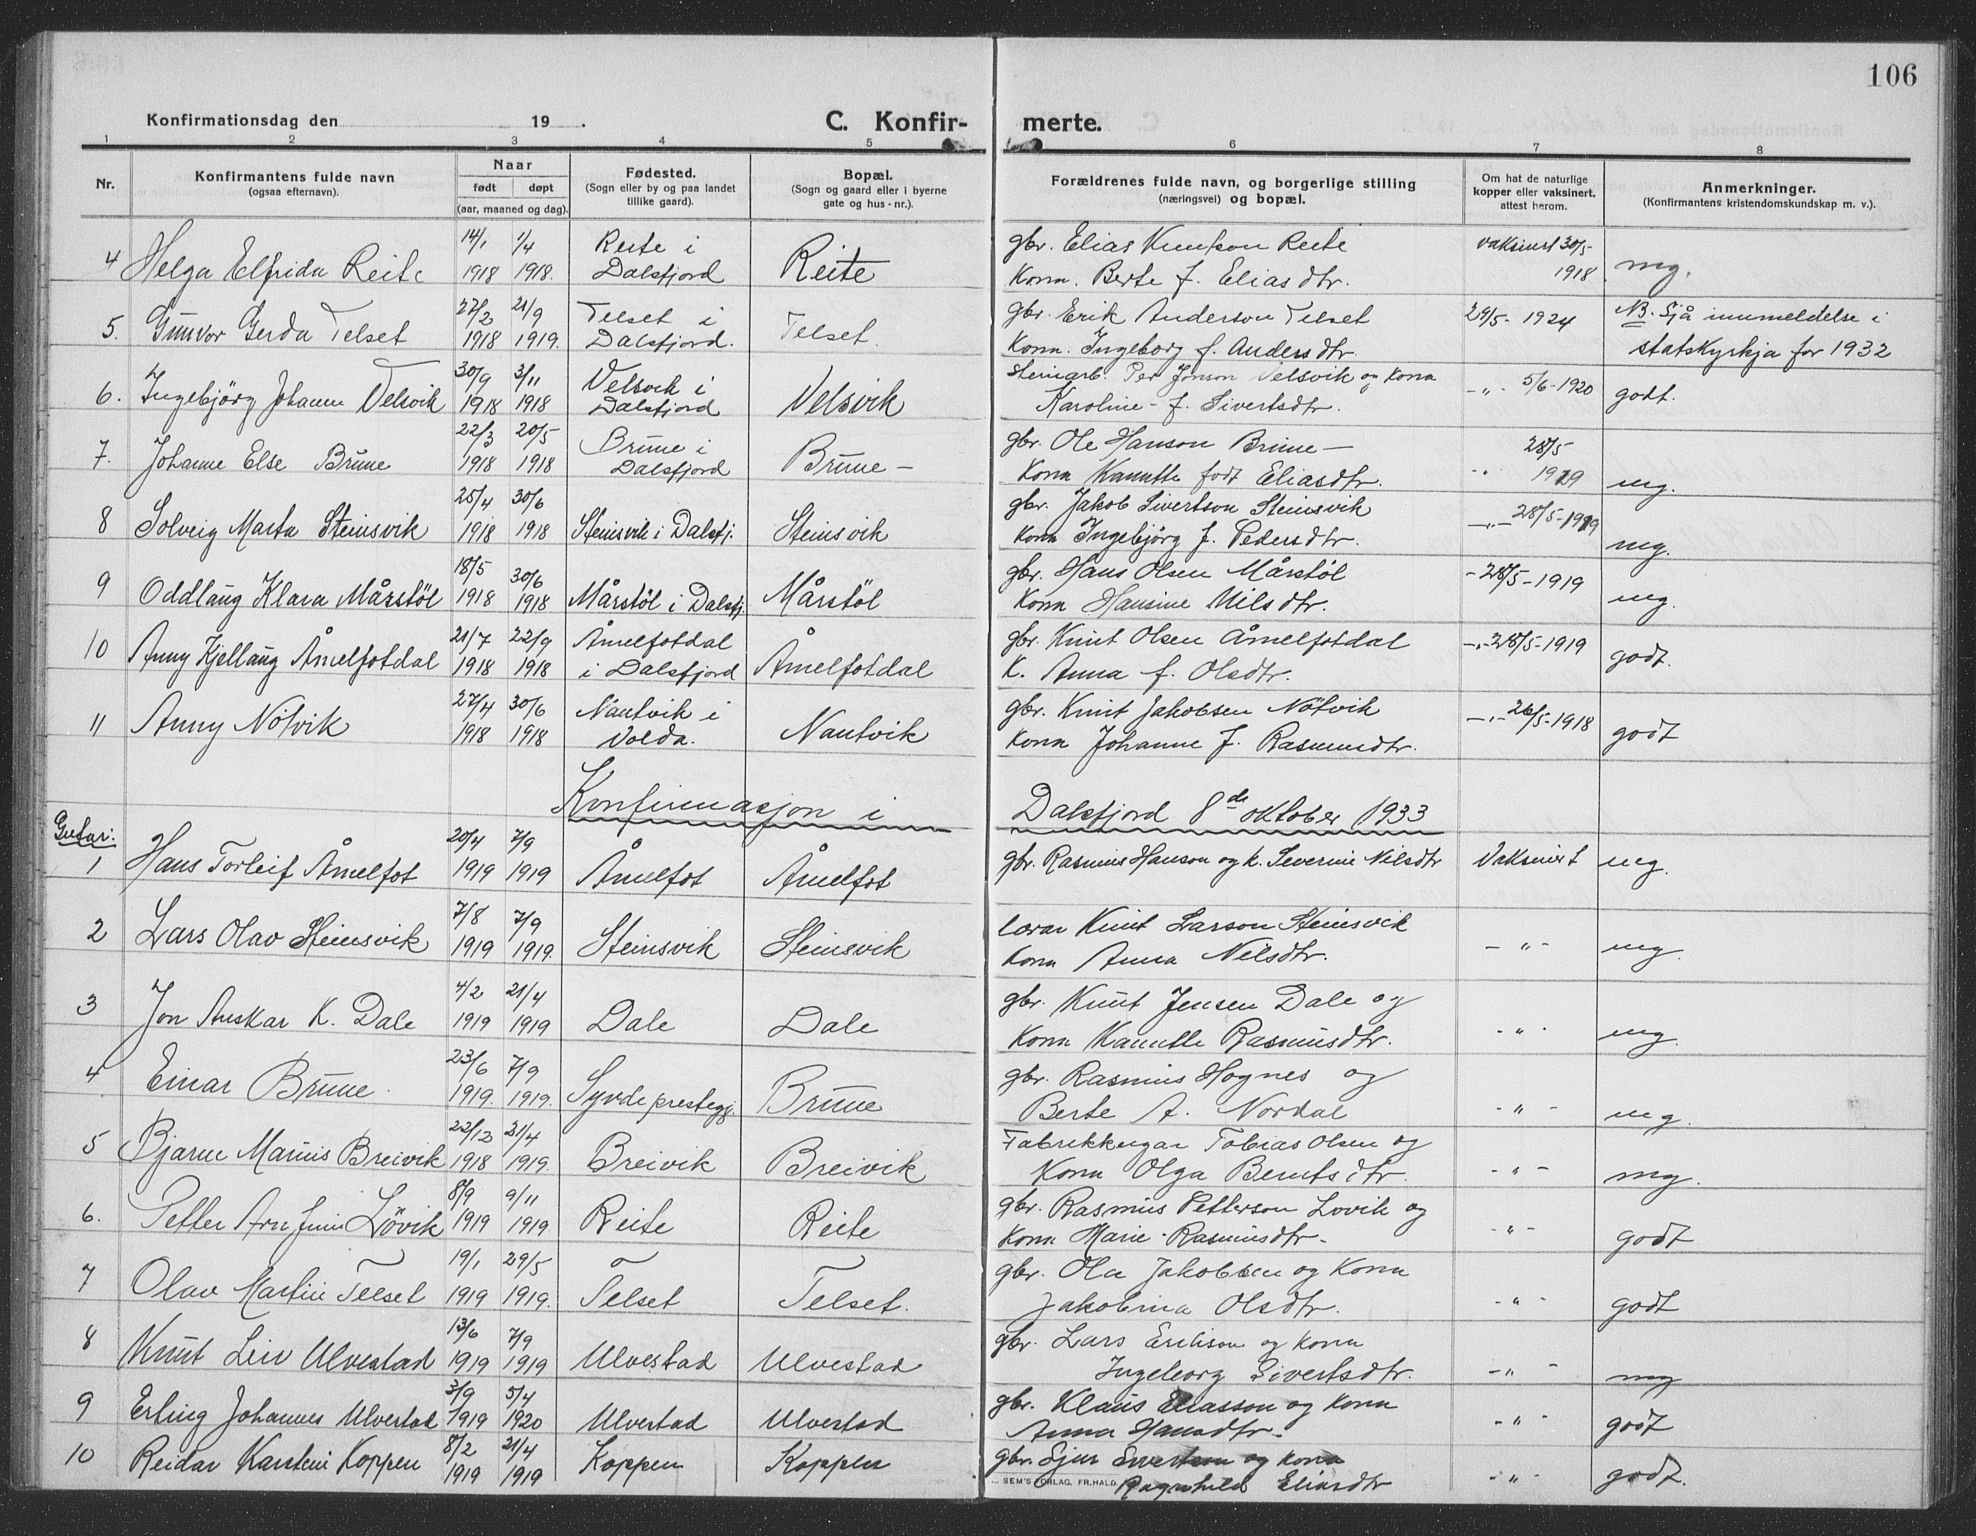 106
Konfirmationsdag den 19 .
C. Konfir- merte.
1 2 3 4 5 6 7 8
Nr.
Konfirmantens fulde navn
(ogsaa efternavn).
Naar
født døpt
(aar, maaned og dag).
Fødested.
(Sogn eller by og paa landet
tillike gaard).
Bopæl.
(Sogn og gaard eller i byerne
gate og hus - nr.).
Forældrenes fulde navn, og borgerlige stilling
(næringsvei) og bopæl.
Om hat de naturlige
kopper eller vaksinert,
attest herom.
Anmerkninger.
(Konfirmantens kristendomskundskap m. v.).
14/1 1/4 Reite i gbr. Elias Knutson Reite vaksinert 30/5-
4 Helga Elfrida Reite 1918 1918. Dalsfjord Reite Kona. Berte f. Eliasdtr. 1918 mg.
27/2 21/9 Telset i gbr. Erik Anderson Telset 29/5- 1924 NB. Sjå innmeldelse i
5. Gunvor Gerda Telset 1918 1919. Dalsfjord. Telset. Kona. Ingeborg f. Andersdtr. statskyrkja for 1932
30/9 3/11 Velsvik i Steinarb. Per Jonson Velsvik og kona
6. Ingebjörg Johanne Velsvik 1918 1918 Dalsfjord Velsvik Karoline - f. Sivertsdtr. -"- 5/6-1920 godt.
22/3 20/5 Brune i gbr. Ole Hanson Brune - 28/5
7. Johanne Else Brune 1918 1918 Dalsfjord Brune - Kona Kanutte födt Eliasdtr. 1919 mg.
25/4 30/6 gbr. Jakob Sivertson Steinsvik
8 Solveig Marta Steinsvik 1918 1918 Steinsvik i Dalsfj. Steinsvik Kona Ingebjörg f. Pedersdtr. -"- 28/5-1919 mg.
18/5 30/6 gbr. Hans Olsen Mårstöl
9 Oddlaug Klara Mårstöl 1918 1918 Mårstöl i Dalsfj. Mårstöl Kona Hansine Nilsdtr. - 28/5-1919 mg.
21/7 22/9 Åmelfotdal gbr. Knut Olsen Åmelfotdal
10 Anny Kjellaug Åmelfotdal 1918 1918 i Dalsfjord Åmelfotdal K. Anna f. Olsdtr. -"- 28/5-1919 godt.
27/4 30/6 Nautvik i gbr. Knut Jakobsen Nötvik
11 Anny Nötvik 1918 1918 Volda. Nautvik Kona Johanne f. Rasmusdtr. -"- 26/5-1918 godt
Konfirmasjon i Dalsfjord 8de oktober 1933
Gutar:
20/4 7/9
1 Hans Torleif Åmelfot 1919 1919 Åmelfot Åmelfot gbr. Rasmus Hanson og k. Severine Nilsdtr Vaksinert mg.
7/8 7/9 lærar Knut Larson Steinsvik
2 Lars Olav Steinsvik 1919 1919. Steinsvik Steinsvik Kona Anna Nilsdtr. -"- mg.
4/2 21/4 gbr. Knut Jensen Dale og
3 Jon Anskar K. Dale 1919 1919 Dale Dale Kona Kanutte Rasmusdtr. -"- mg.
23/6 7/9 gbr. Rasmus Hognes og
4 Einar Brune 1919. 1919. Syvde prestegj. Brune Berte A. Nordal -"- mg.
22/12 21/4 Fabrikkeigar Tobias Olsen og
5 Bjarne Marius Breivik 1918 1919. Breivik Breivik Kona Olga Berntsdtr. -"- mg.
8/9 9/11 gbr. Rasmus Petterson Lovik og
6. Petter Arn Lövik 1919 1919. Reite Reite Kona Marie Rasmusdtr. -"- godt
19/1 29/5 gbr. Ola Jakobsen og Kona
7 Olav Martin Telset 1919 1919. Telset Telset. Jakobina Olsdtr. -"- godt
13/6 7/9 gbr. Lars Erikson og kona
8 Knut Leiv Ulvestad 1919 1919 Ulvestad Ulvestad Ingeborg Sivertsdtr. -"- mg
3/9 5/4 gbr. Klaus Eliasson og kona
9 Erling Johannes Ulvestad 1919 1920 Ulvestad Ulvestad Anna Hansdtr. -"- godt
8/2 21/4 gbr. Sjur Sivertson og kona
10 Reidar Karstein Koppen 1919 1919 Koppen Koppen Ragnhild Eliasdtr -"- godt.
SEM'S FORLAG. FR.HALD